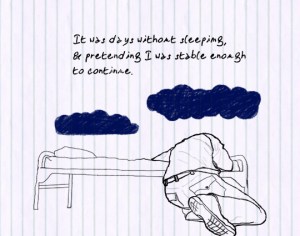 It was days without sleeping,
& pretending I was stable enough
to continue.